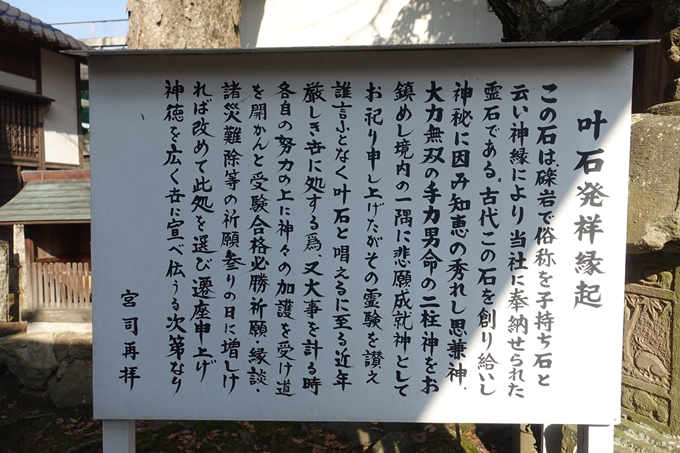 叶石発祥縁起
この石は礫岩で俗称を子持ち石と
云い神縁により当社に奉納せられた
霊石である。古代この石を創り給いし
神秘に因み知恵の秀れし思兼神、
大力無双の手力男命の二柱神をお
鎮めし境内の一隅に悲願成就神として
お祀り申し上げたがその霊験を讃え
誰言ふとなく叶石と唱えるに至る近年
厳しき世に処する為、又大事を計る時
各自の努力の上に神々の加護を受け道
を開かんと受験合格必勝祈願・縁談・
諸災難除等の祈願参りの日に増しけ
れば改めて此処を選び遷座申上げ
神徳を広く世に宣べ伝うる次第なり
宮司再拝